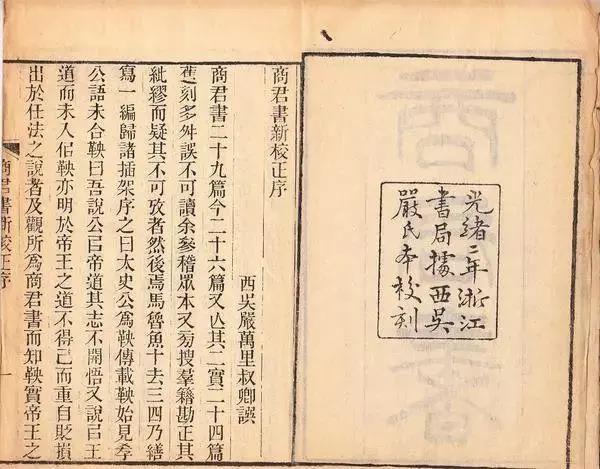 光緒二年浙江
書局據西吳
嚴氏本校刻
商君書新校正序
西吳嚴萬里叔卿譔
商君書二十九篇今二十六篇又亾其二實二十四篇
舊刻多舛誤不可讀余參稽眾本又旁搜羣籍勘正其
紕繆而疑其不可攷者然後焉馬魯魚十去三四乃繕
寫一編歸諸插架序之曰太史公爲鞅傳載鞅始見孝
公語未合鞅曰吾說公㠯帝道其志不開悟又說㠯王
道而未入佀鞅亦明於帝王之道不得已而重自貶損
出於任法之說者及觀所爲商君書而知鞅實帝王之
商君書新校正序
一